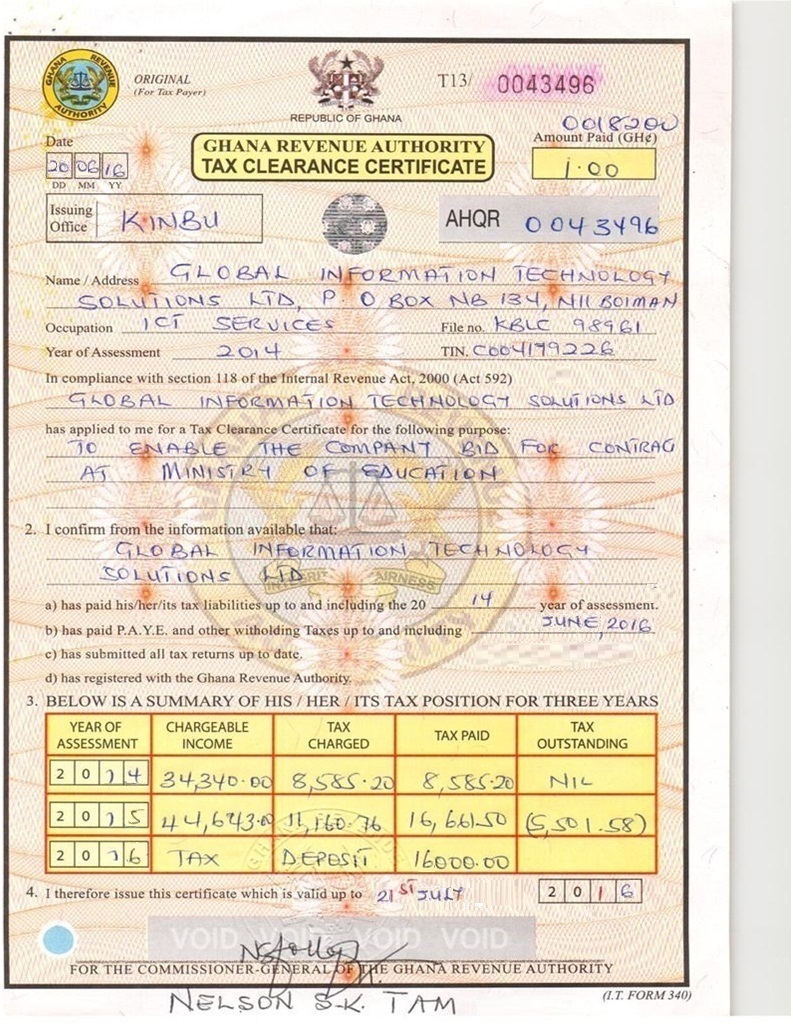 GHANA REVENUE AUTHORITY
ORIGINAL
(For Tax Payer)
REPUBLIC OF GHANA
T13/ 0043496
0018200
Date
20 06 16
DD MM YY
GHANA REVENUE AUTHORITY
TAX CLEARANCE CERTIFICATE
Amount Paid (GH¢)
1.00
Issuing Office KINBU
AHQR 0043496
Name / Address GLOBAL INFORMATION TECHNOLOGY
SOLUTIONS LTD, P. O BOX NB 134, NII BOIMAN
Occupation ICT SERVICES File no. KBLC 98961
Year of Assessment 2014 TIN. C0004179226
In compliance with section 118 of the Internal Revenue Act, 2000 (Act 592)
GLOBAL INFORMATION TECHNOLOGY SOLUTIONS LTD
has applied to me for a Tax Clearance Certificate for the following purpose:
TO ENABLE THE COMPANY BID FOR CONTRAC
AT MINISTRY OF EDUCATION
2. I confirm from the information available that:
GLOBAL INFORMATION TECHNOLOGY
SOLUTIONS LTD
a) has paid his/her/its tax liabilities up to and including the 20 14 year of assessment.
b) has paid P.A.Y.E. and other witholding Taxes up to and including JUNE, 2016
c) has submitted all tax returns up to date.
d) has registered with the Ghana Revenue Authority.
3. BELOW IS A SUMMARY OF HIS / HER / ITS TAX POSITION FOR THREE YEARS
YEAR OF ASSESSMENT CHARGEABLE INCOME TAX CHARGED TAX PAID TAX OUTSTANDING
2014 34,340.00 8,585.20 8,585.20 NIL
2015 44,643.0 11,160.76 16,661.50 (5,501.58)
2016 TAX DEPOSIT 16000.00
4. I therefore issue this certificate which is valid up to 21ST JULY 2016
VOID VOID VOID VOID
FOR THE COMMISSIONER-GENERAL OF THE GHANA REVENUE AUTHORITY
NELSON S.K. TAM
(I.T. FORM 340)